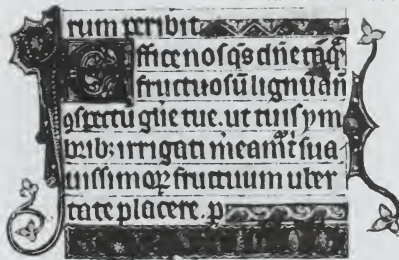 rum peribit
Effice nos q̄s dn̄e tāq̄
fructuosū lignū an̄
ꝯspectu gl̄ie tue. ut tuis ym
bribꝫ irrigati sua
uissimoꝝ fructuum uber
tate placere. p